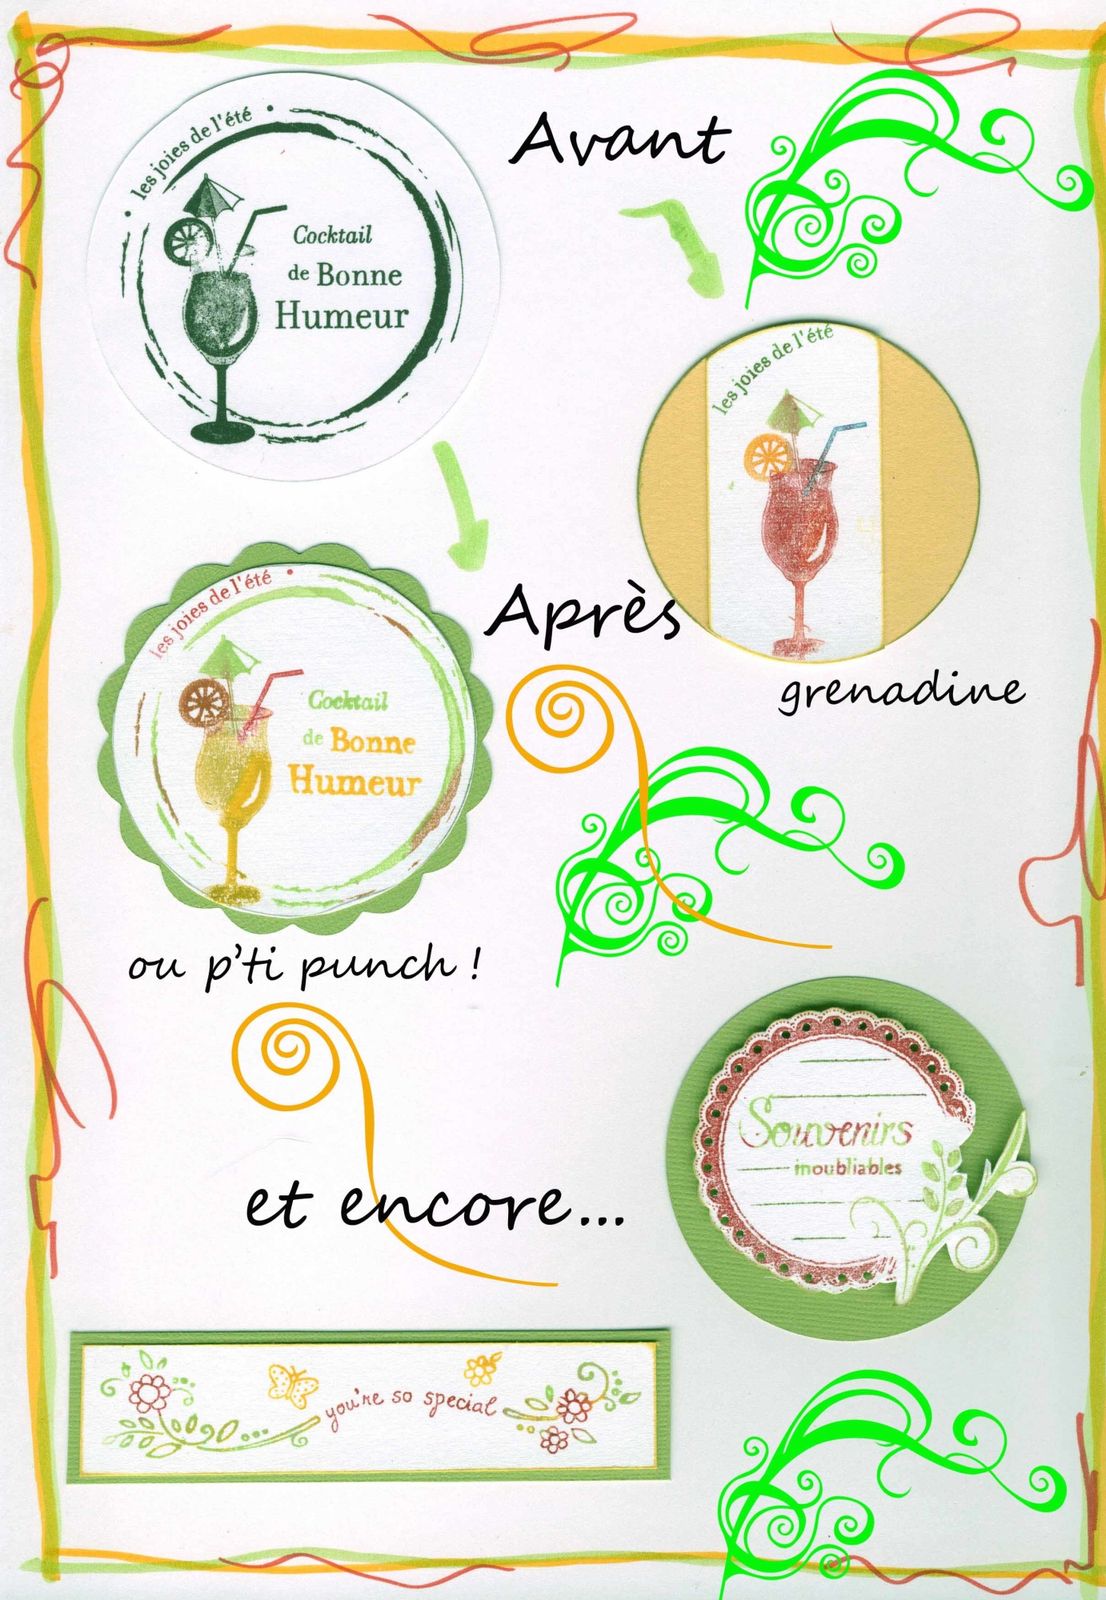 les joies de l'été
Cocktail
de Bonne
Humeur
Avant
les joies de l'été
Après
grenadine
les joies de l'été
Cocktail
de Bonne
Humeur
ou p'ti punch !
Souvenirs
inoubliables
et encore...
you're so special